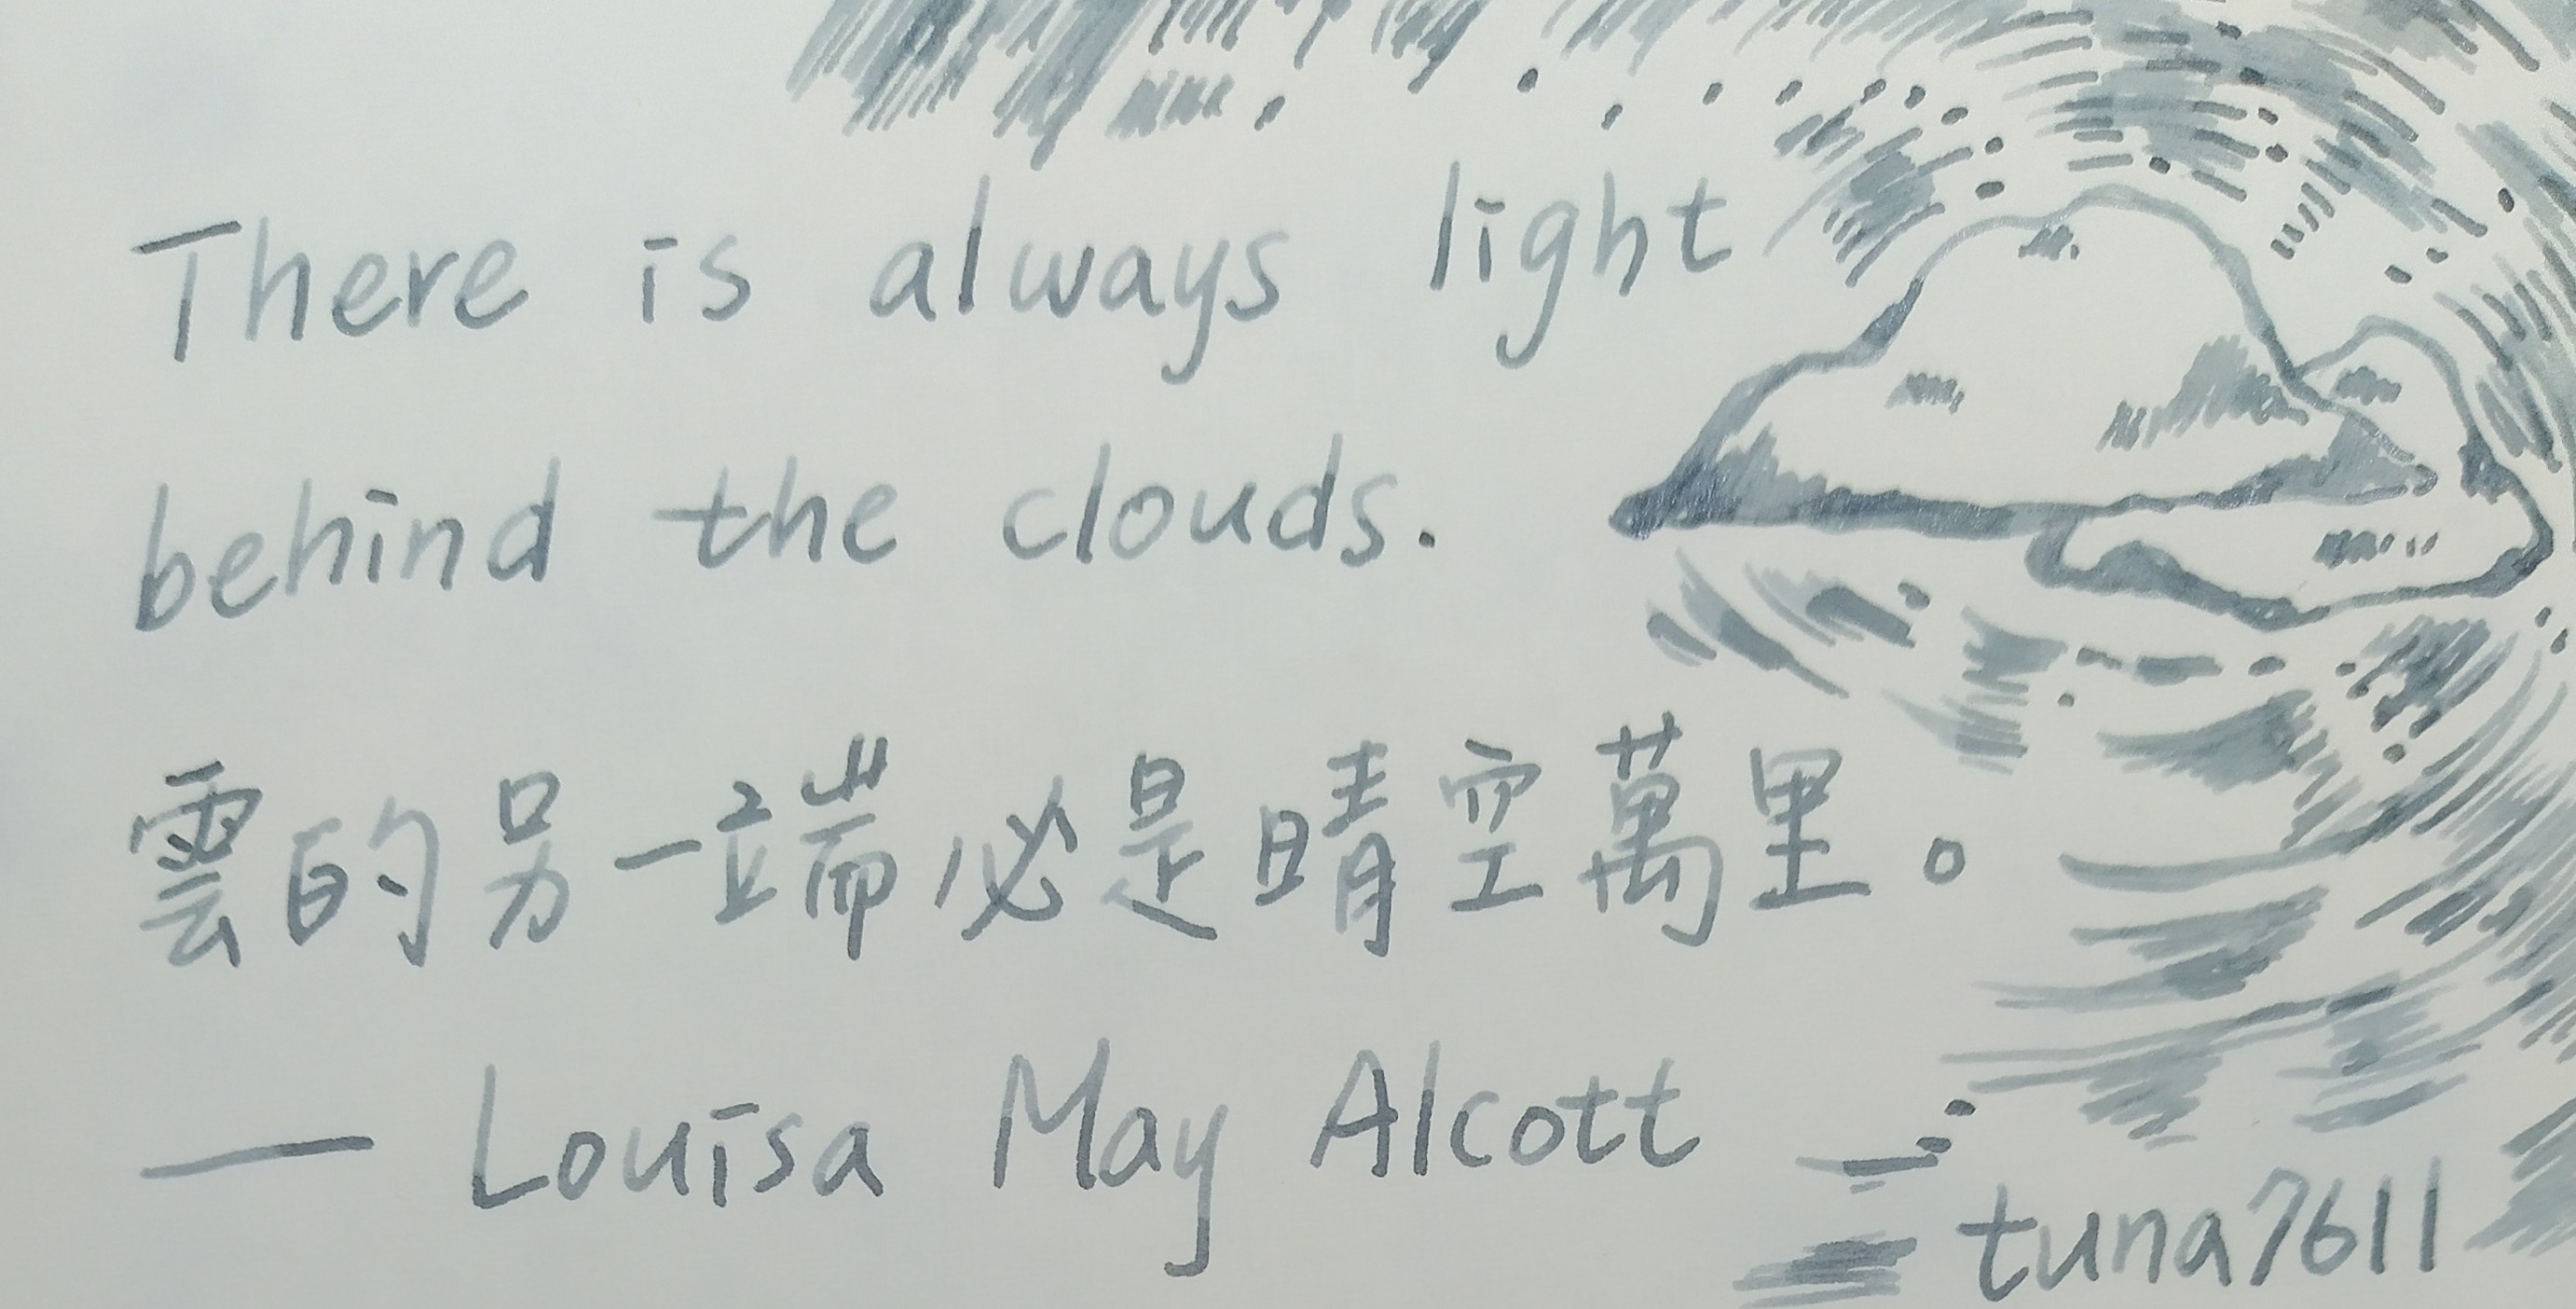 There is always light
behind the clouds.
雲的另一端必是晴空萬里。
— Louisa May Alcott
tuna7611